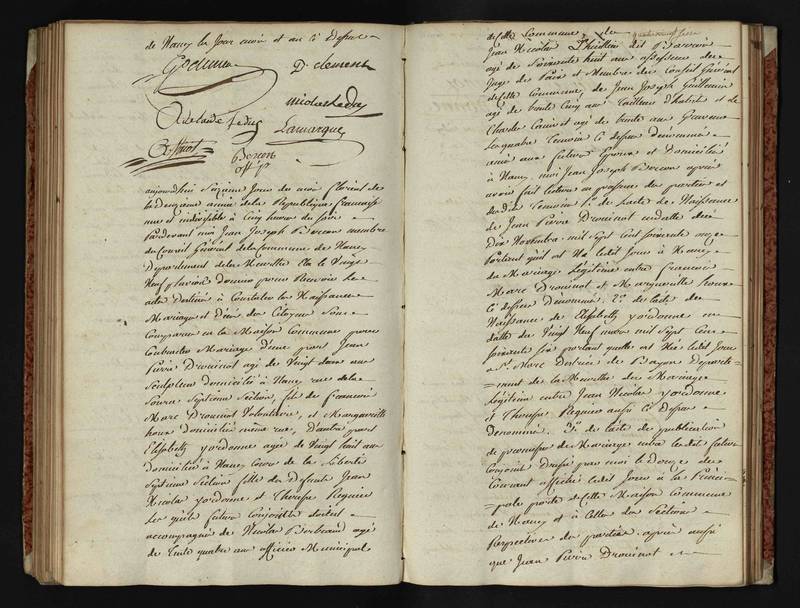 de Nancy les Jour mois et an Ci dessus
D. clement
nicolas Leduc
adelaide Leduc
Lamarque
Berson
off. p.
aujourdhui Seizieme Jour du mois floreal de
la deuxieme année de la Republique francaise
une et indivisible à Cinq heures du Soir
Pardevant moi Jean Joseph Berson membre
du Conseil Général de la Commune de Nancy
Departement de la Meurthe Elu le Vingt
Neuf pluviose dernier pour Recevoir les
actes Destinés à Constater les Naissances
Mariages et Décès des Citoyens Sont
Comparus en la Maison Commune pour
Contracter Mariage d'une part Jean
Pierre Drouinot agé de Vingt deux ans
Sculpteur domicilié à Nancy rue de la
Source Septieme Section, fils de francois
Marc Drouinot Volontaire, et Marguerite
houx Domiciliés même rue, D'autre part
Elisabeth yordonne agée de Vingt huit ans
domiciliée à Nancy Cours de la Liberté
Septieme Section fille des Defunts Jean
Nicolas yordonne et Therese Requier
Lesquels futurs Conjoints étoient
accompagnés de Nicolas agé
de trente quatre ans officier Municipal
de cette Commune, de
Jean Nicolas dit
agé de Soixante huit ans assesseur du
Juge de Paix et Membre du Conseil Général
de cette Commune, de Jean Joseph Guillemin
agé de trente Cinq ans Tailleur d'habits et de
Charles agé de trente ans Graveur
Les quatre témoins Ci dessus dénommés
amis aux futurs Epoux et Domiciliés
à Nancy, moi Jean Joseph Berson après
avoir fait lecture en présence des parties et
desdits témoins 1.° de l'acte de Naissance
de Jean Pierre Drouinot en datte du
Dix Novembre mil Sept Cent Soixante onze
Portant qu'il est Né Ledit Jour à Nancy
du Mariage Légitime entre francois
Marc Drouinot et Marguerite houx
Ci dessus Dénommés, 2.° de l'acte de
Naissance de Elisabeth yordonne en
datte du Vingt Neuf mars mil Sept Cent
Soixante Six portant qu'elle est Née Ledit Jour
à S.t Marc District de Bayon Departe-
-ment de la Meurthe du Mariage
Légitime entre Jean Nicolas yordonne
et Therese Requier aussi Ci Dessus
Dénommés. 3.° de l'acte de publication
de promesse de Mariage entre lesdits futurs
Conjoints Dressé par moi le douze du
Courant affiché Ledit Jour à la Princi-
-pale porte de cette Maison Commune
de Nancy et à Celles des Sections
Respectives des parties après aussi
que Jean Pierre Drouinot